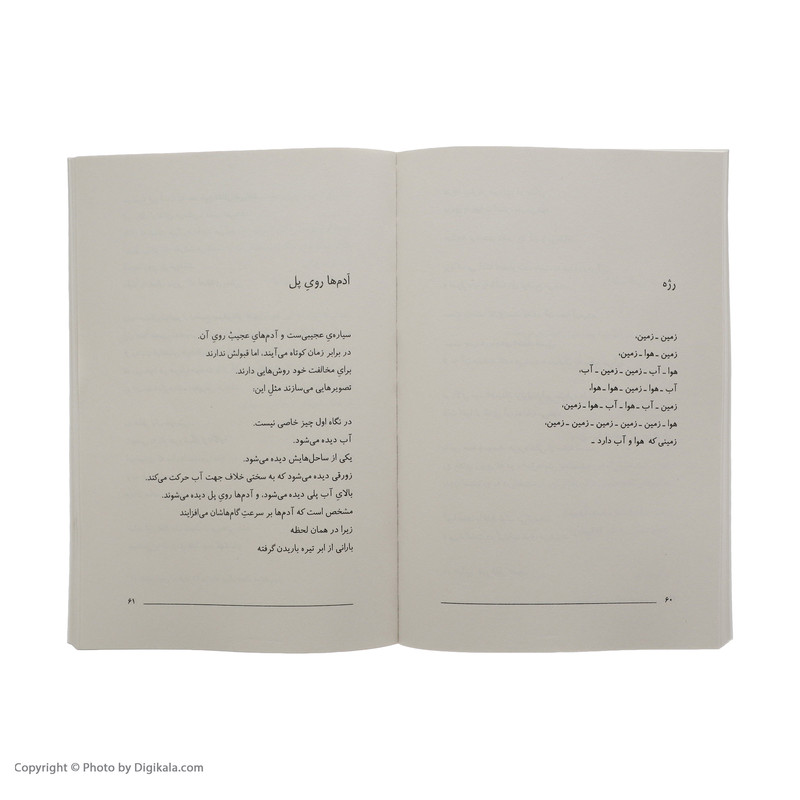 رژه
زمین ـ زمین،
زمین ـ هوا ـ زمین،
هوا ـ آب ـ زمین ـ زمین ـ آب،
آب ـ هوا ـ زمین ـ هوا ـ هوا،
زمین ـ آب ـ هوا ـ آب ـ هوا ـ زمین،
هوا ـ زمین ـ زمین ـ زمین ـ زمین ـ زمین،
زمینی که هوا و آب دارد ـ
۶۰
آدم‌ها رویِ پل
سیاره‌یِ عجیبی‌ست و آدم‌هایِ عجیبْ رویِ آن.
در برابر زمان کوتاه می‌آیند، اما قبولش ندارند
برایِ مخالفت خود روش‌هایی دارند.
تصویرهایی می‌سازند مثلِ این:
در نگاه اول چیز خاصی نیست.
آب دیده می‌شود.
یکی از ساحل‌هایش دیده می‌شود.
زورقی دیده می‌شود که به سختی خلاف جهت آب حرکت می‌کند.
بالایِ آب پلی دیده می‌شود، و آدم‌ها رویِ پل دیده می‌شوند.
مشخص است که آدم‌ها بر سرعتِ گام‌هاشان می‌افزایند
زیرا در همان لحظه
بارانی از ابر تیره باریدن گرفته
۶۱
Copyright © Photo by Digikala.com